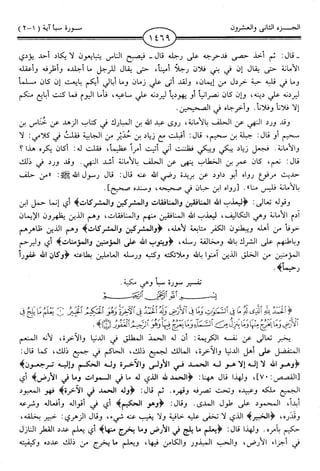 الجـــزء الثاني والعشرون
١٤٦٩
سورة سبأ آية (١-٢)
ـ قال: ثم أخذ حصى فدحرجه على رجله قال ـ فيصبح الناس يتبايعون لا يكاد أحد يؤدي
الأمانة حتى يقال إن في بني فلان رجلاً أميناً، حتى يقال للرجل ما أجلده وأظرفه وأعقله
وما في قلبه حبة خردل من إيمان، ولقد أتى علي زمان وما أبالي أيكم بايعت إن كان مسلماً
ليردنه علي دينه، وإن كان نصرانياً أو يهودياً ليردنه علي ساعيه، فأما اليوم فما كنت أبايع منكم
إلا فلاناً وفلاناً. وأخرجاه في الصحيحين.
وقد ورد النهي عن الحلف بالأمانة، روى عبد الله بن المبارك في كتاب الزهد عن خُناس بن
سحيم أو قال: جبلة بن سحيم، قال: أقبلت مع زياد بن حُدَير من الجابية فقلت في كلامي: لا
والأمانة. فجعل زياد يبكي ويبكي فظننت أني أتيت أمراً عظيماً، فقلت له: أكان يكره هذا؟
قال: نعم، كان عمر بن الخطاب ينهى عن الحلف بالأمانة أشد النهي. وقد ورد في ذلك
حديث مرفوع رواه أبو داود عن بريدة رضي الله عنه قال: قال رسول الله ﷺ: «من حلف
بالأمانة فليس منا».
وقوله تعالى: ﴿ليعذب الله المنافقين والمنافقات والمشركين والمشركات﴾ أي إنما حمل ابن
آدم الأمانة وهي التكاليف، ليعذب الله المنافقين منهم والمنافقات، وهم الذين يظهرون الإيمان
خوفاً من أهله ويبطنون الكفر متابعة لأهله، ﴿والمشركين والمشركات﴾ وهم الذين ظاهرهم
وباطنهم على الشرك بالله ومخالفة رسله، ﴿ويتوب الله على المؤمنين والمؤمنات﴾ أي وليرحم
المؤمنين من الخلق الذين آمنوا بالله وملائكته وكتبه ورسله العاملين بطاعته ﴿وكان الله غفوراً
رحيماً﴾.
تفسير سورة سبأ وهي مكية.
يخبر تعالى عن نفسه الكريمة: أن له الحمد المطلق في الدنيا والآخرة، لأنه المنعم
المتفضل على أهل الدنيا والآخرة، المالك لجميع ذلك، الحاكم في جميع ذلك، كما قال:
﴿وهو الله لا إله إلا هو له الحمد في الأولى والآخرة وله الحكم وإليه ترجعون﴾
[القصص: ٧٠]، ولهذا قال ههنا: ﴿الحمد لله الذي له ما في السموات وما في الأرض﴾ أي
الجميع ملكه وعبيده وتحت تصرفه وقهره. ثم قال: ﴿وله الحمد في الآخرة﴾ فهو المعبود
أبداً، المحمود على طول المدى. وقال: ﴿وهو الحكيم﴾ أي في أقواله وأفعاله وشرعه
وقدره، ﴿الخبير﴾ الذي لا تخفى عليه خافية ولا يغيب عنه شيء، وقال الزهري: خبير بخلقه،
حكيم بأمره. ولهذا قال: ﴿يعلم ما يلج في الأرض وما يخرج منها﴾ أي يعلم عدد القطر النازل
في أجزاء الأرض، والحب المبذور والكامن فيها، ويعلم ما يخرج من ذلك عدده وكيفيته